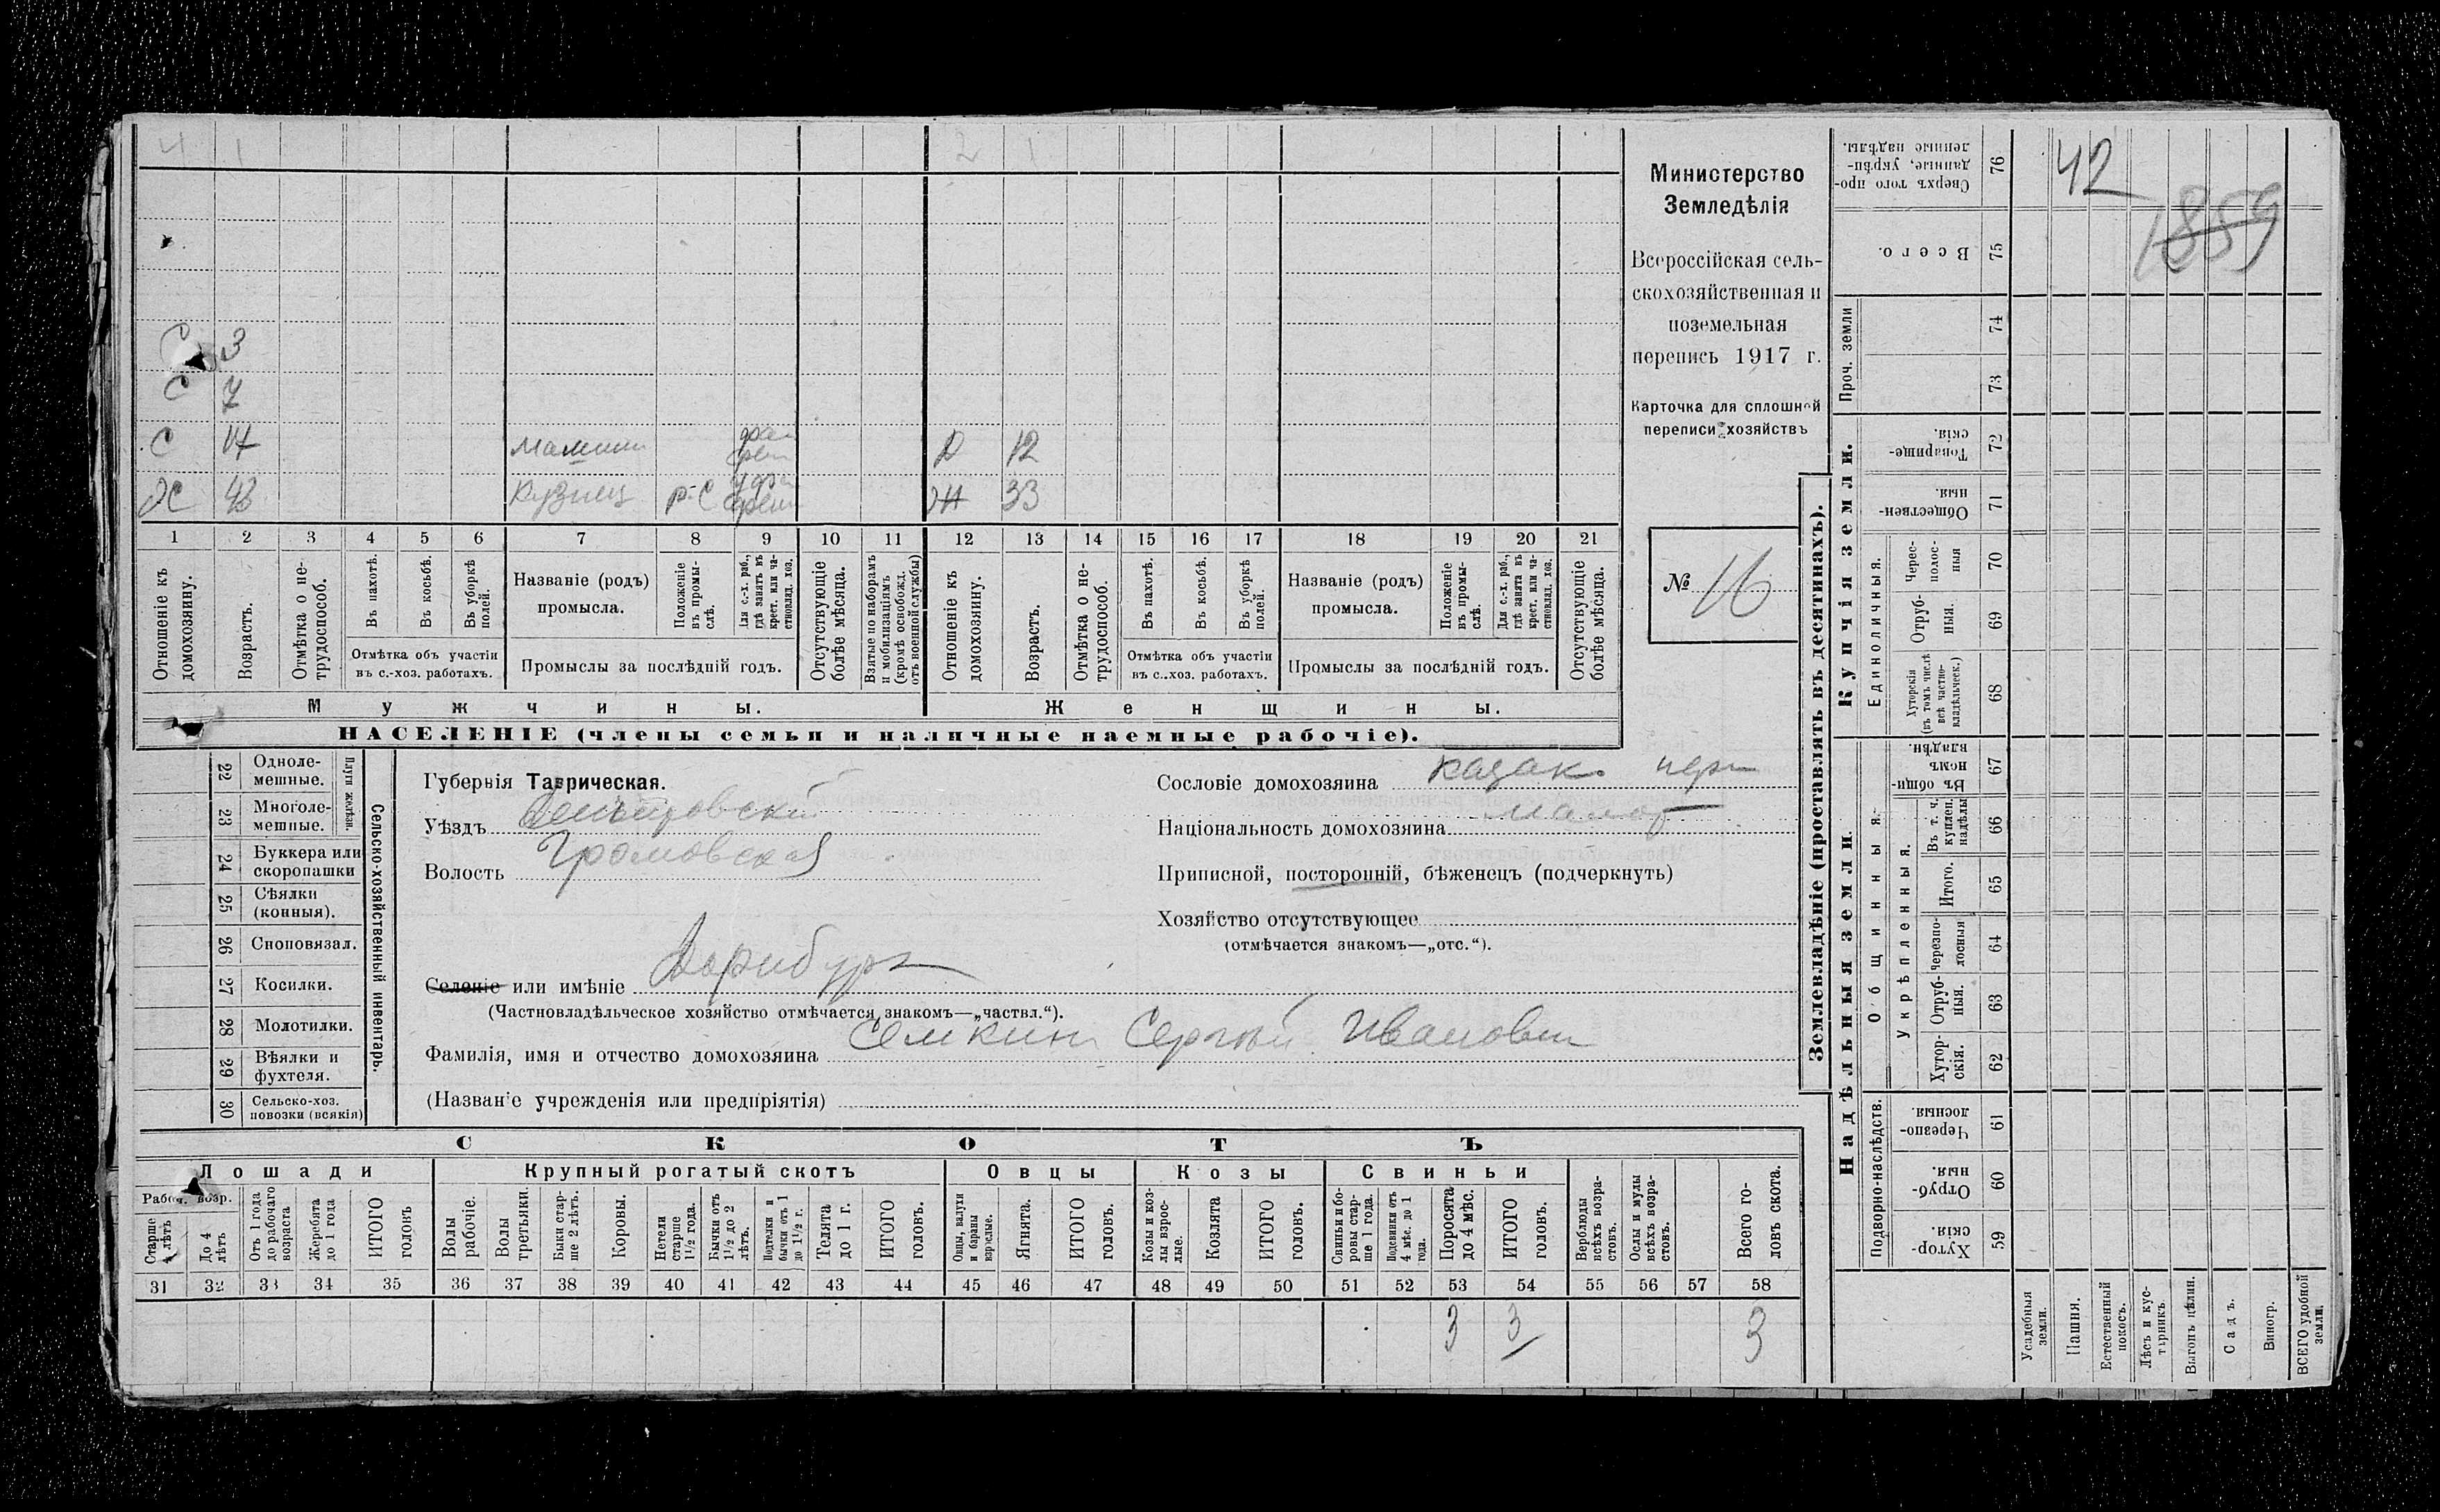 4 1 2 1
С 3
С 7
С 14 Д 12
ЭС 43 Кузнец р-С ЭН 33
1 2 3 4 5 6 7 8 9 10 11 12 13 14 15 16 17 18 19 20 21
Отношеніе къ домохозяину.
Возрастъ.
Отмѣтка о нетрудоспособ.
Въ пахотѣ.
Въ косьбѣ.
Въ уборкѣ полей.
Отмѣтка объ участіи
въ с.-хоз. работахъ.
Названіе (родъ)
промысла.
Положеніе въ промыслѣ.
Для с.-х. раб., гдѣ занятъ въ крест. или частновлад. хоз.
Промыслы за послѣдній годъ.
Отсутствующіе болѣе мѣсяца.
Взятые по наборамъ и мобилизаціямъ (кромѣ освобожд. отъ военной службы)
Отношеніе къ домохозяину.
Возрастъ.
Отмѣтка о нетрудоспособ.
Въ пахотѣ.
Въ косьбѣ.
Въ уборкѣ полей.
Отмѣтка объ участіи
въ с..хоз. работахъ.
Названіе (родъ)
промысла.
Положеніе въ промыслѣ.
Для с.-х. раб., гдѣ занята въ крест. или частновлад. хоз.
Промыслы за послѣдній годъ.
Отсутствующіе болѣе мѣсяца.
Мужчины. Женщины.
НАСЕЛЕНІЕ (члены семьи и наличные наемные рабочіе).
Министерство
Земледѣлія
Всероссійская сель-
скохозяйственная и
поземельная
перепись 1917 г.
Карточка для сплошной
переписи хозяйствъ
№ 16
22 Одноле-
мешные.
23 Многоле-
мешные.
Плуги желѣзн.
24 Буккера или
скоропашки
25 Сѣялки
(конныя).
26 Сноповязал.
27 Косилки.
28 Молотилки.
29 Вѣялки и
фухтеля.
30 Сельско-хоз.
повозки (всякія)
Сельско-хозяйственный инвентарь.
Губернія Таврическая.
Уѣздъ Днепровский
Волость Громовская
Селеніе или имѣніе Дорнбург
(Частновладѣльческое хозяйство отмѣчается знакомъ—„частвл.“).
Фамилія, имя и отчество домохозяина Семкин Сергѣй Иванович
(Названіе учрежденія или предпріятія)
Сословіе домохозяина казак
Національность домохозяина малор
Приписной, посторонній, бѣженецъ (подчеркнуть)
Хозяйство отсутствующее
(отмѣчается знакомъ—„отс.“).
СКОТЪ
Лошади Крупный рогатый скотъ Овцы Козы Свиньи
Рабоч. возр.
Старше 4 лѣтъ
До 4 лѣтъ
Отъ 1 года до рабочаго возраста
Жеребята до 1 года
ИТОГО головъ
Волы рабочіе.
Волы третьяки.
Быки старше 2 лѣтъ.
Коровы.
Нетели старше 1½ года.
Бычки отъ 1½ до 2 лѣтъ.
Подтелки и бычки отъ 1 до 1½ г.
Телята до 1 г.
ИТОГО головъ.
Овцы, валухи и бараны взрослые.
Ягнята.
ИТОГО головъ.
Козы и козлы взрослые.
Козлята
ИТОГО головъ.
Свиньи и боровы старше 1 года.
Подсвинки отъ 4 мѣс. до 1 года.
Поросята до 4 мѣс.
ИТОГО головъ.
Верблюды всѣхъ возрастовъ.
Ослы и мулы всѣхъ возрастовъ.
Всего головъ скота.
31 32 33 34 35 36 37 38 39 40 41 42 43 44 45 46 47 48 49 50 51 52 53 54 55 56 57 58
3 3 3
Землевладѣніе (проставлять въ десятинахъ).
Надѣльныя земли. Купчія земли. Проч. земли
Подворно-наслѣдств. Общинныя. Единоличныя.
Укрѣпленныя.
Хуторскія. 59
Отрубныя. 60
Черезполосныя. 61
Хуторскія. 62
Отрубныя. 63
черезполосныя 64
Итого. 65
Въ т. ч. куплен. надѣлы 66
Въ общиномъ владѣн. 67
Хуторскія (въ томъ числѣ всѣ частновладѣльческ.) 68
Отрубныя. 69
Череcполосныя 70
Общественныя. 71
Товарищескія. 72
73
74
Всего. 75
Сверхъ того проданные, укрѣпленные надѣлы. 76
Усадебныя земли.
Пашня.
Естественный покосъ.
Лѣсъ и кустарникъ.
Выгонъ цѣлин.
Садъ.
Виногр.
ВСЕГО удобной земли.
42
1859